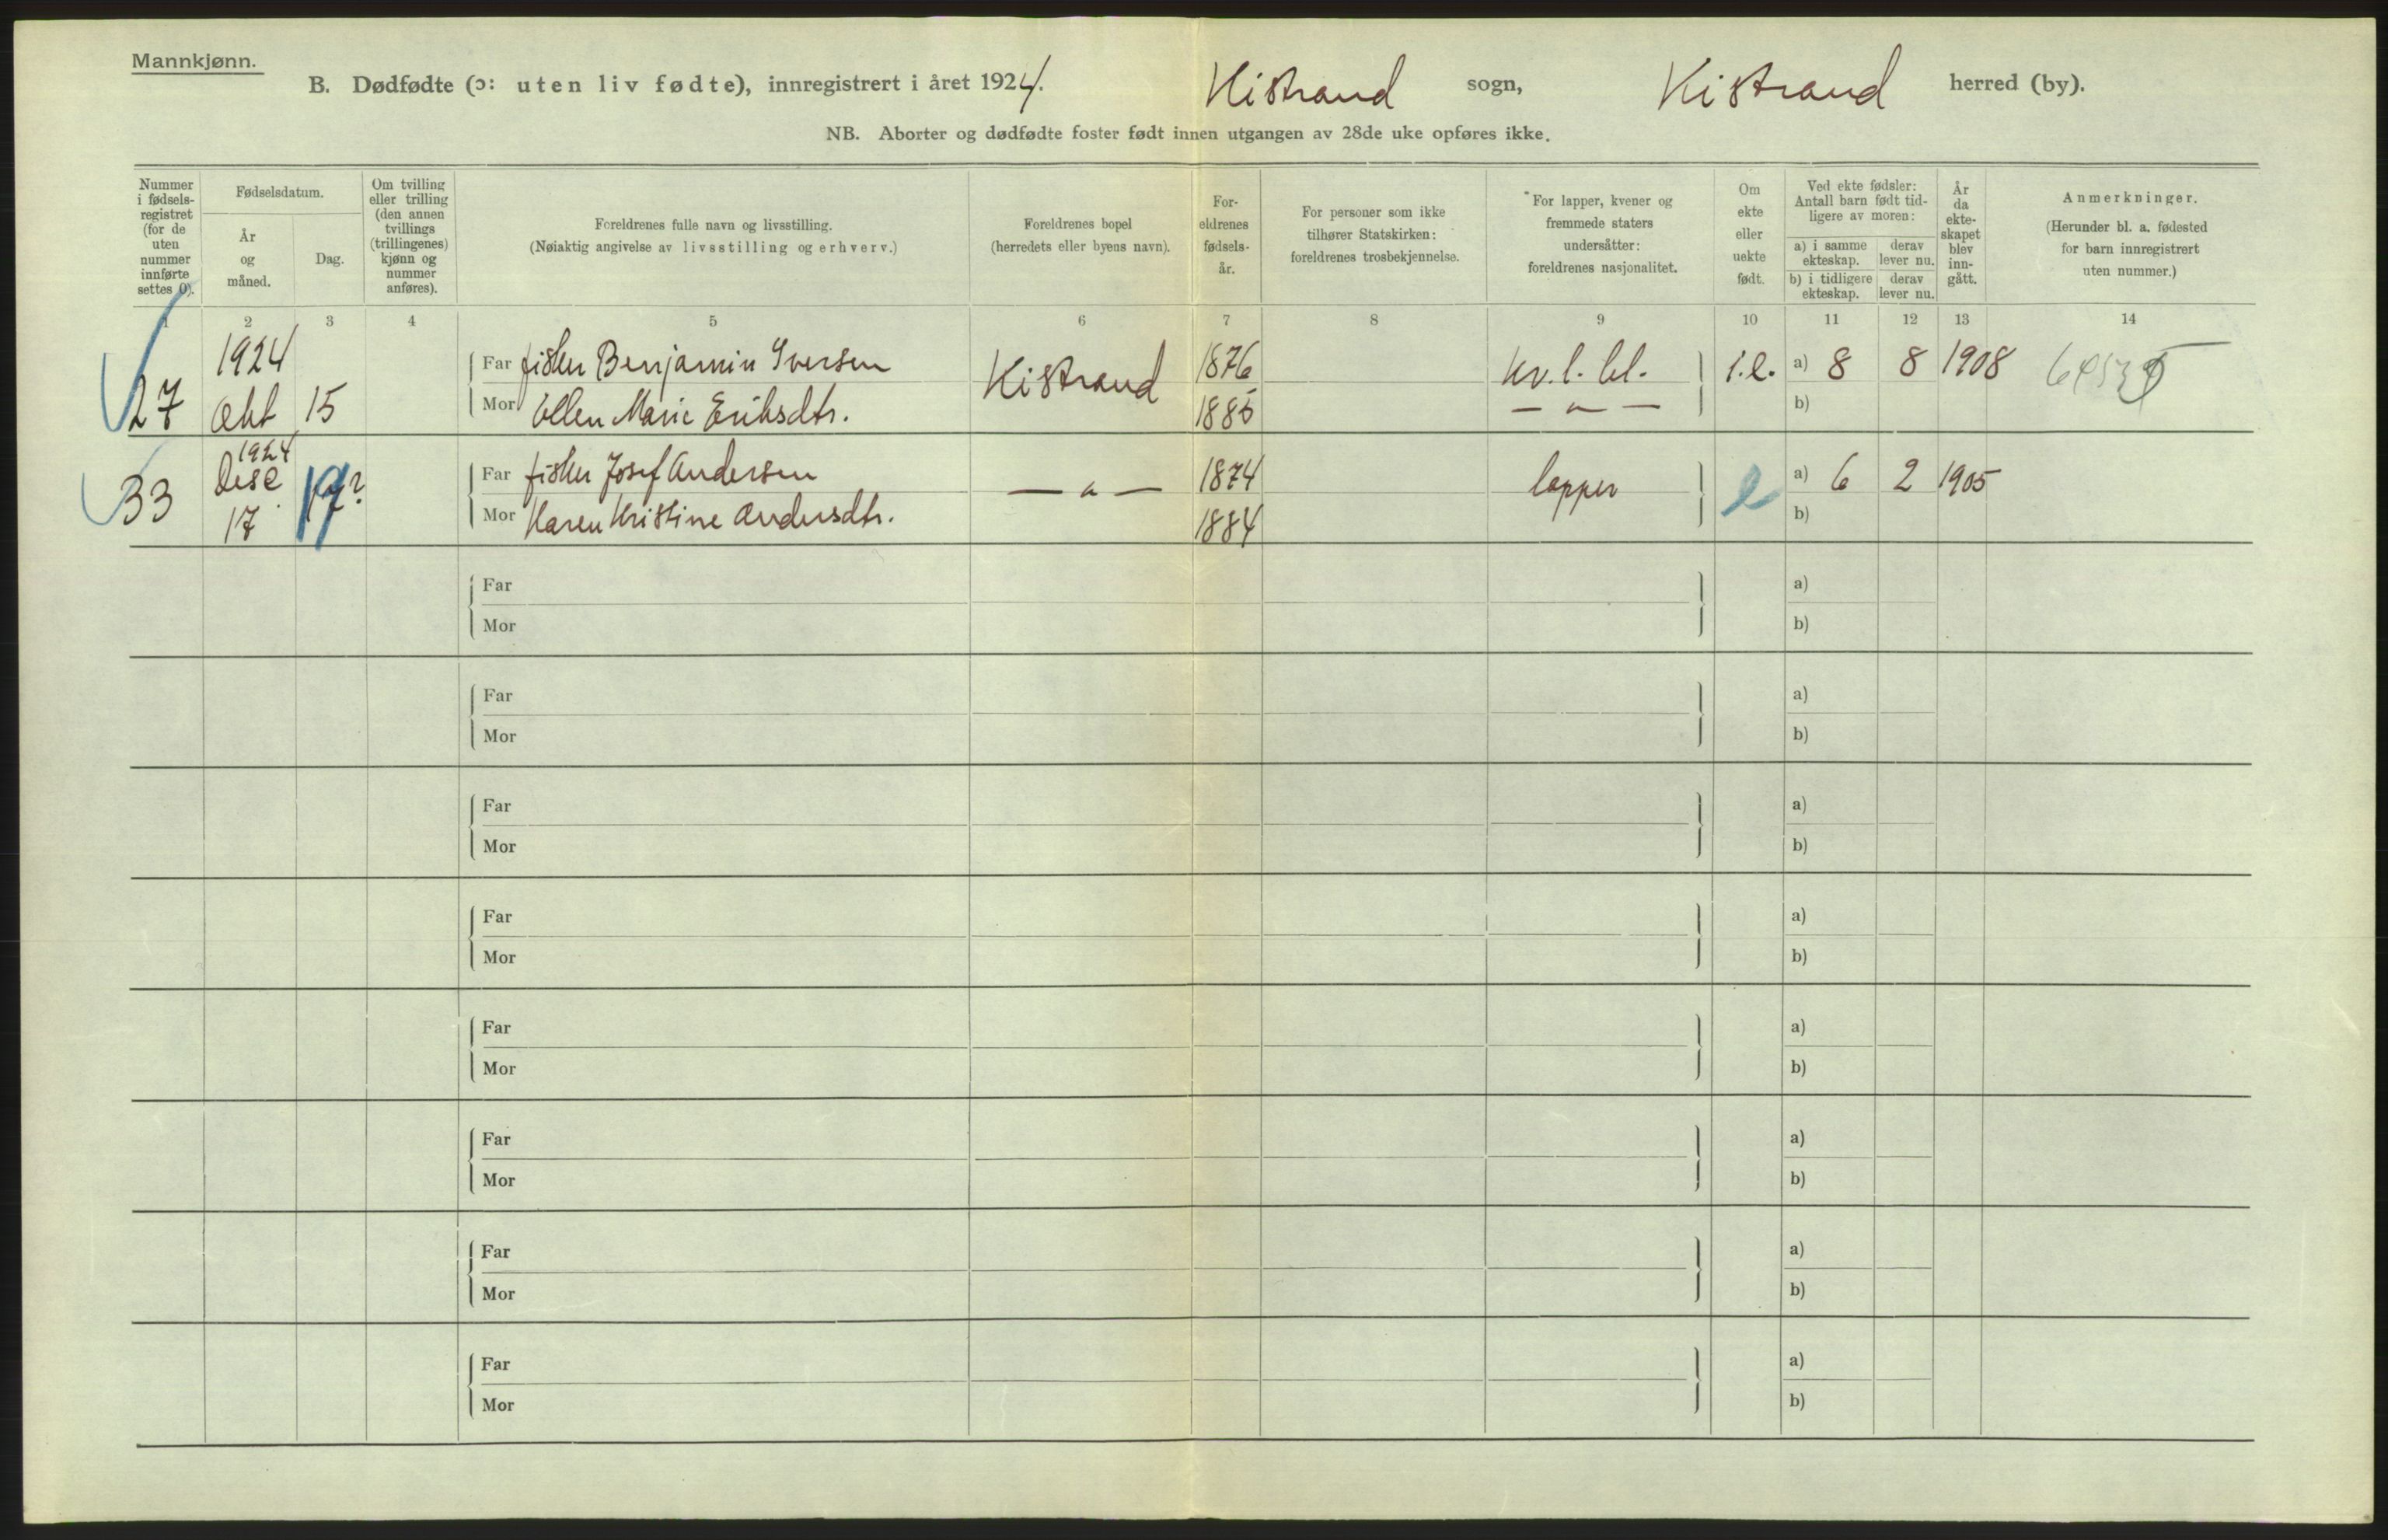 Mannkjønn.
B. Dødfødte (ɔ: uten liv fødte), innregistrert i året 1924. Kistrand sogn, Kistrand herred (by).
NB. Aborter og dødfødte foster født innen utgangen av 28de uke opføres ikke.
Nummer i fødsels-registret (for de uten nummer innførte settes 0).
Fødselsdatum.
År og måned.
Dag.
Om tvilling eller trilling (den annen tvillings (trillingenes) kjønn og nummer anføres).
Foreldrenes fulle navn og livsstilling.
(Nøiaktig angivelse av livsstilling og erhverv.)
Foreldrenes bopel
(herredets eller byens navn).
For-eldrenes fødsels-år.
For personer som ikke tilhører Statskirken: foreldrenes trosbekjennelse.
For lapper, kvener og fremmede staters undersåtter: foreldrenes nasjonalitet.
Om ekte eller uekte født.
Ved ekte fødsler: Antall barn født tid-ligere av moren:
a) i samme ekteskap.
derav lever nu.
b) i tidligere ekteskap.
derav lever nu.
År da ekte-skapet blev inn-gått.
Anmerkninger.
(Herunder bl. a. fødested for barn innregistrert uten nummer.)
1 2 3 4 5 6 7 8 9 10 11 12 13 14
27 1924 Okt 15
Far fisker Benjamin Iversen Kistrand 1876 kv. l. bl. i.e. a) 8 8 1908
Mor Ellen Marie Eriksdtr. — " — b)
33 1924 Dese 17 17?
Far fisker Josef Andersen — " — 1874 lapper e a) 6 2 1905
Mor Karen Kristine Andersdtr. 1884 b)
Far a)
Mor b)
Far a)
Mor b)
Far a)
Mor b)
Far a)
Mor b)
Far a)
Mor b)
Far a)
Mor b)
Far a)
Mor b)
Far a)
Mor b)